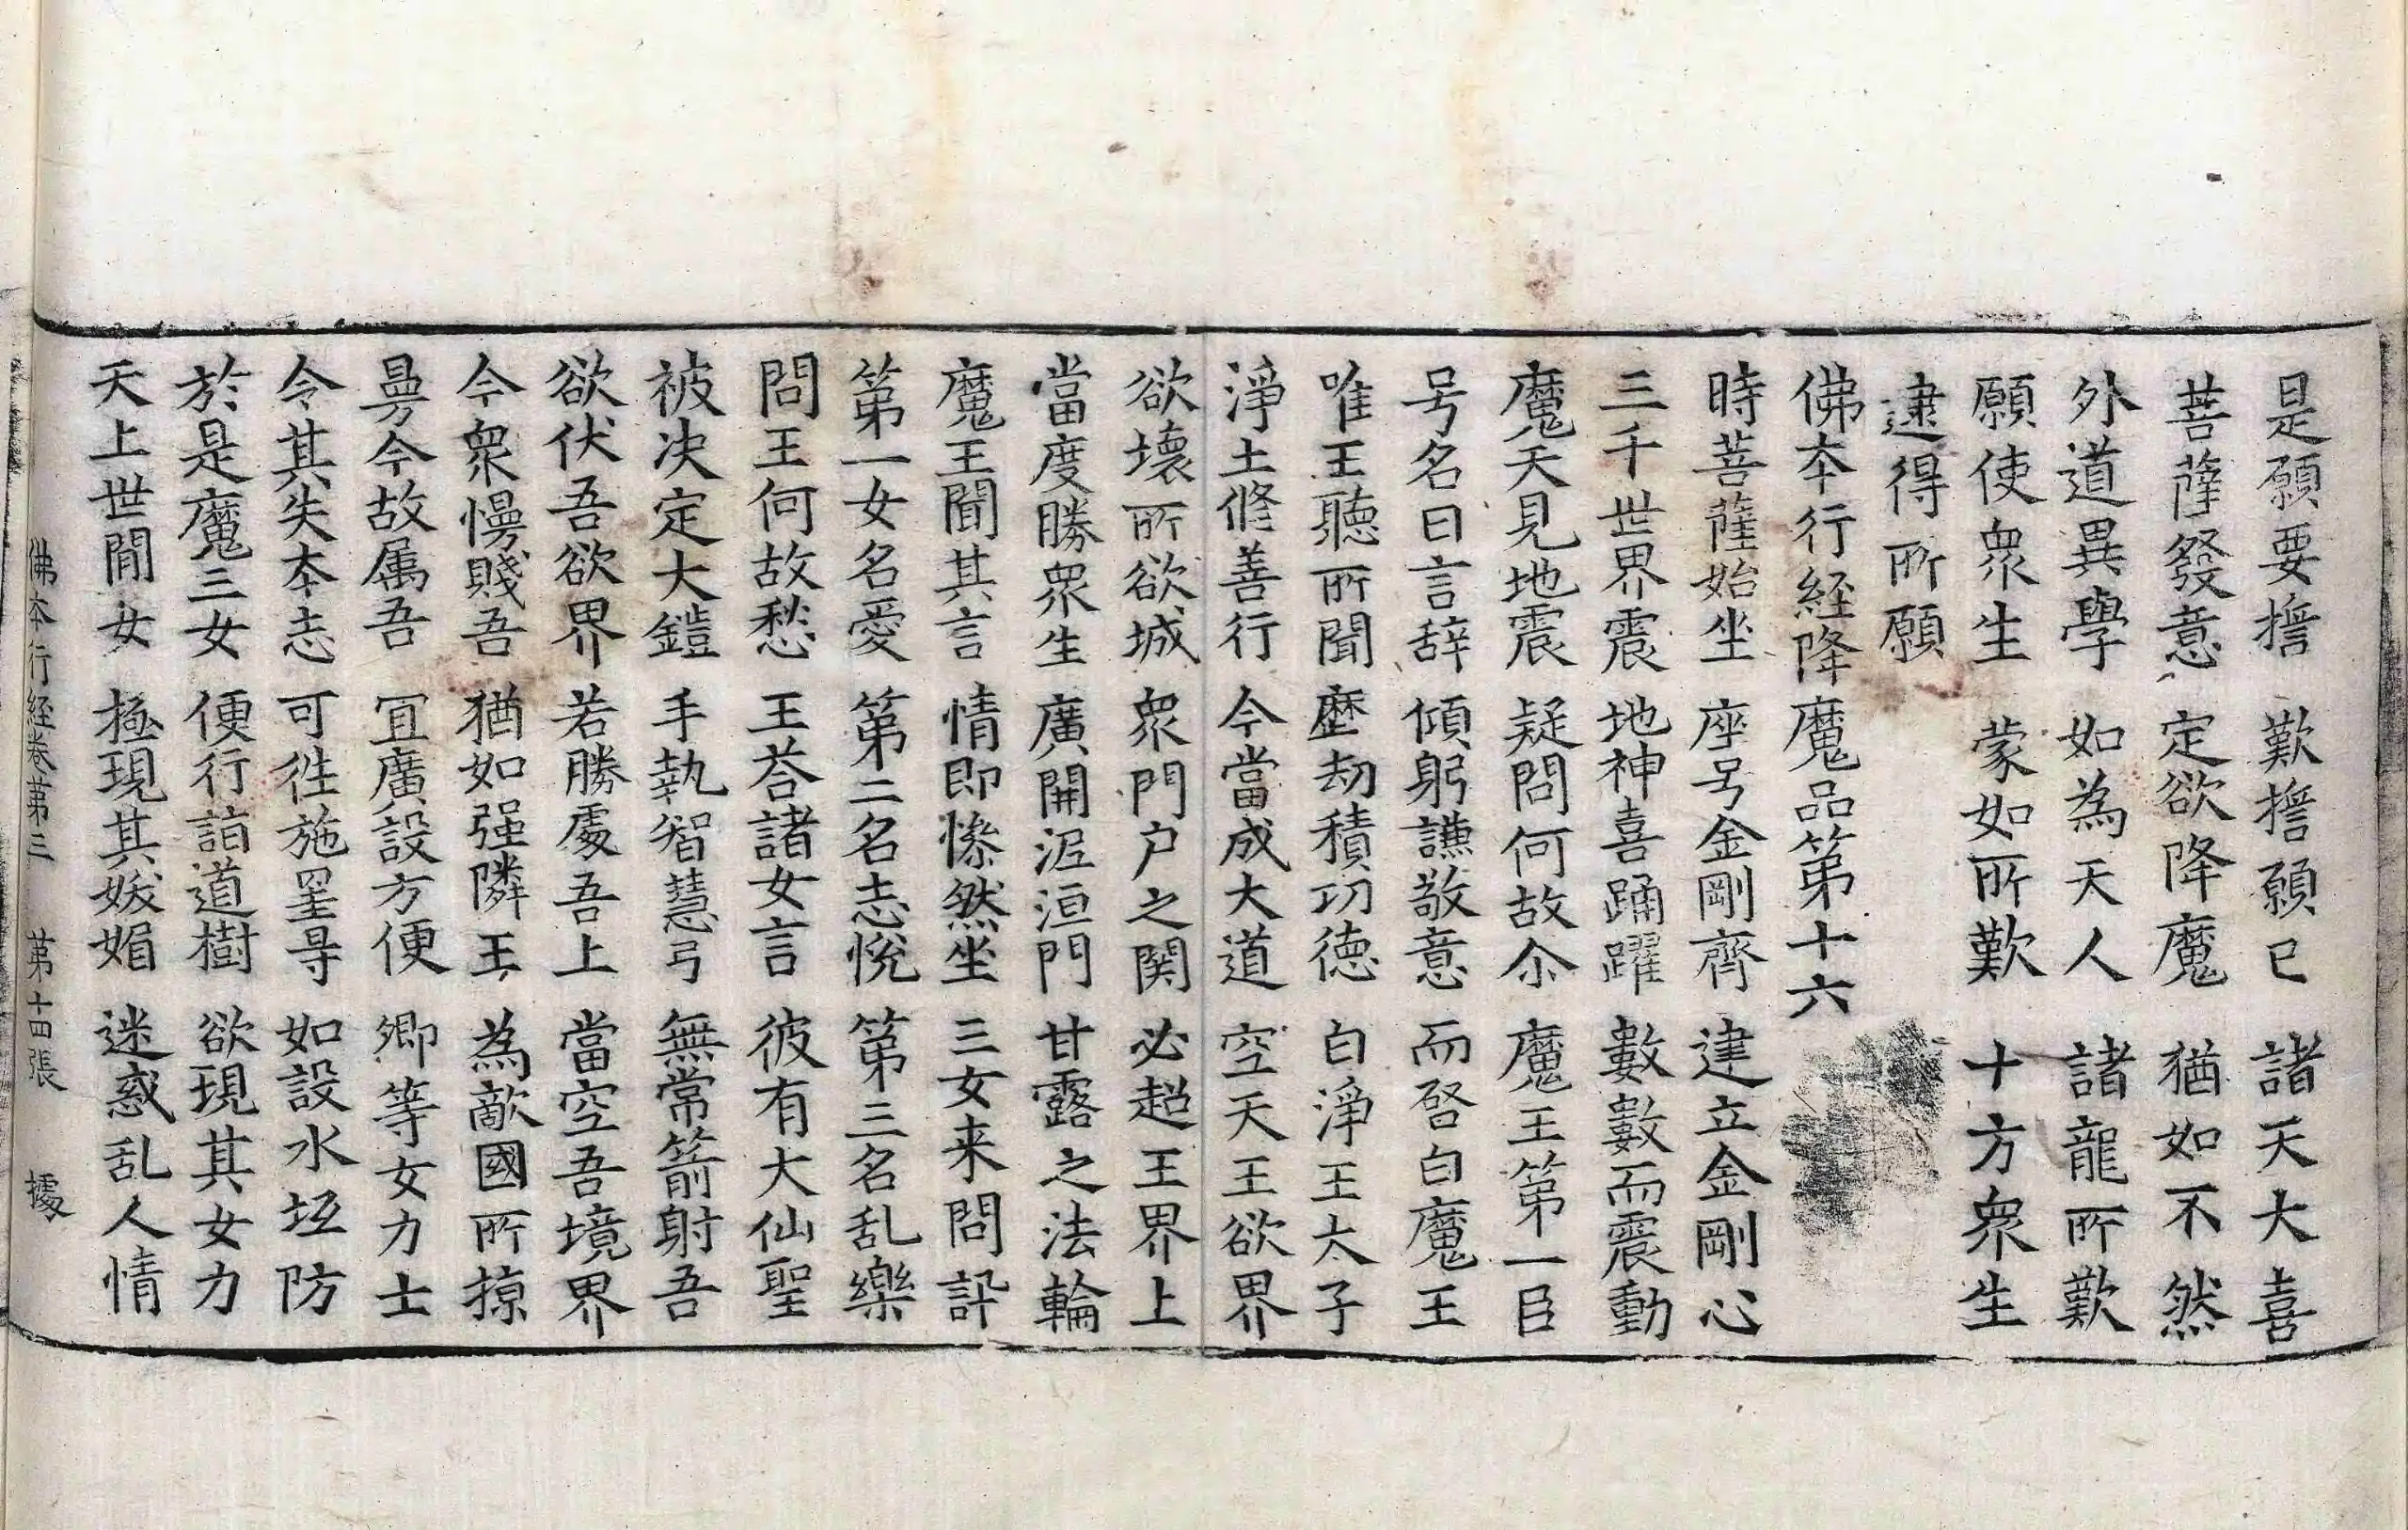 是願要擔　歎擔願已　諸天大喜
菩薩發意　定欲降魔　猶如不然
外道異學　如為天人　諸龍所歎
願使衆生　蒙如所歎　十方衆生
逮得所願
佛本行経降魔品第十六
時菩薩始坐　座号金剛齊　建立金剛心
三千世界震　地神喜踊躍　數數而震動
魔天見地震　疑問何故尒　魔王第一臣
号名曰言辞　傾躬謙敬意　而啓白魔王
唯王聽所聞　歷劫積功德　白淨王太子
淨土修善行　今當成大道　空天王欲界
欲壞所欲城　衆門户之関　必超王界上
當度勝衆生　廣開泥洹門　甘露之法輪
魔王聞其言　情即慘然坐　三女来問訊
第一女名愛　第二名志悅　第三名乱樂
問王何故愁　王荅諸女言　彼有大仙聖
被决定大鎧　手執智慧弓　無常箭射吾
欲伏吾欲界　若勝處吾上　當空吾境界
今衆慢賤吾　猶如强隣王　為敵國所掠
曼今故属吾　宜廣設方便　卿等女力士
令其失本志　可徃施罣㝵　如設水坻防
於是魔三女　便行詣道樹　欲現其女力
天上世間女　極現其姣媚　迷惑乱人情
佛本行経卷第三　第十四張　據